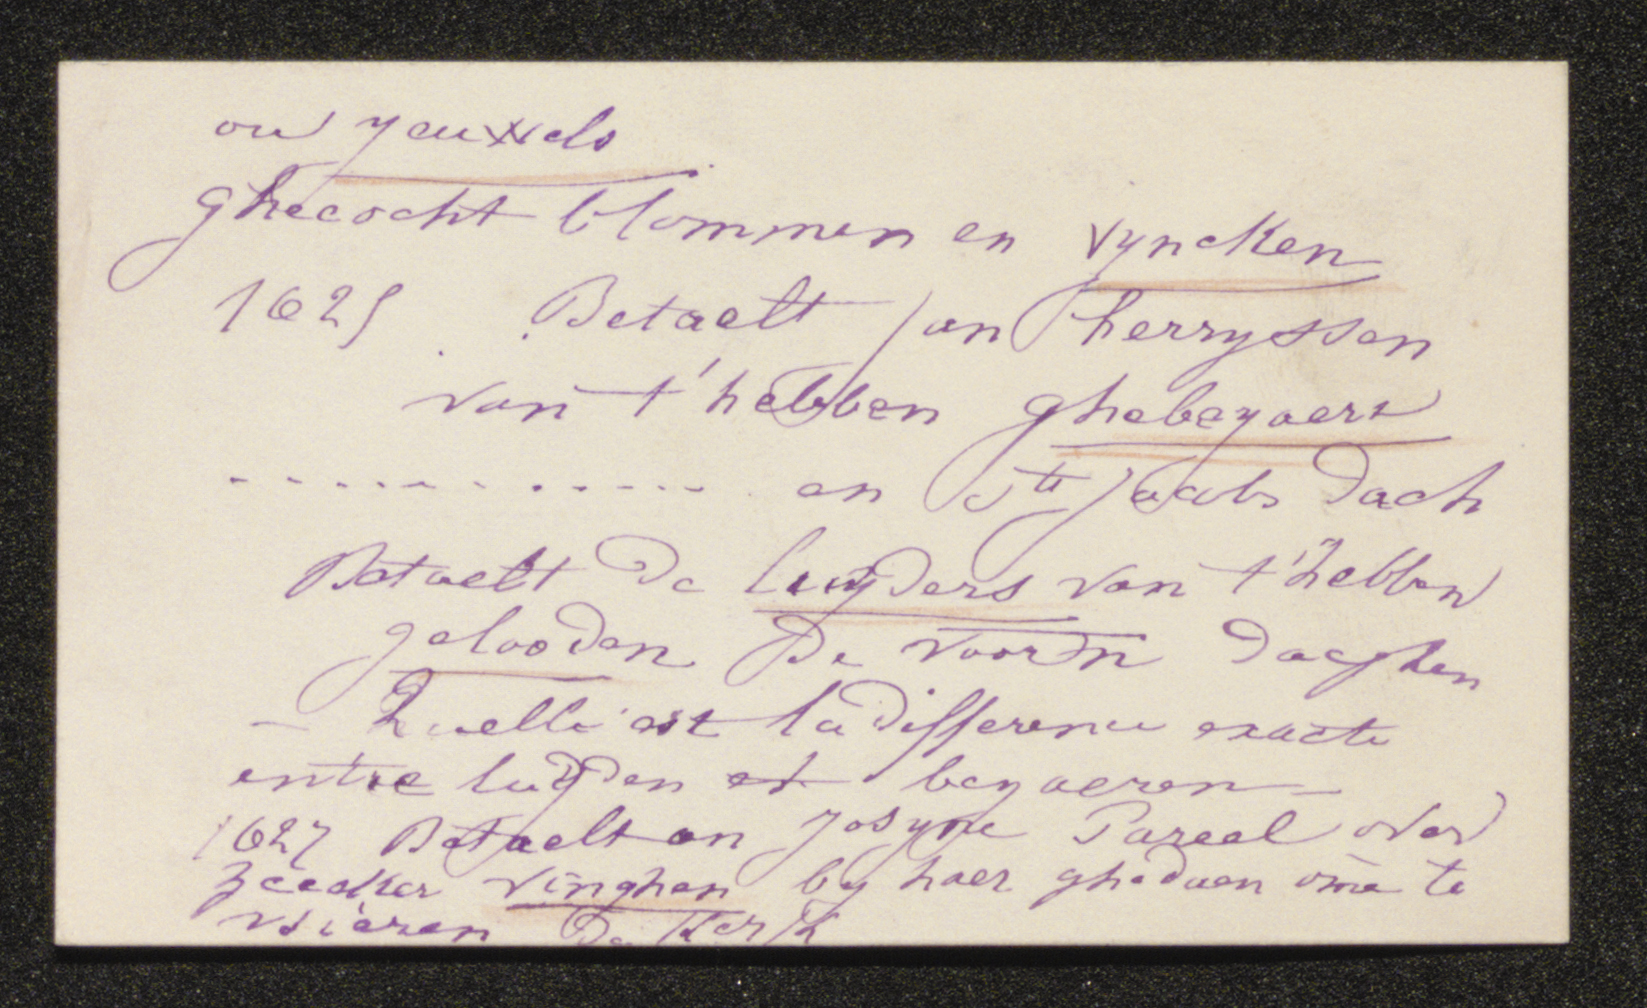 ou yeuxels
ghecocht blommen en vyncken
1625 . Betaelt Jan Therryssen
van t'hebben ghebeyaert
.............. en Ste Jacobs dach
Betaelt de luyders van t'hebben
gelooden de voorn daeghen
— Quelle est la difference exacte
entre luyden et beyaeren —
1627 Betaelt an Josyne Pareel over
zeecker vinghen by haer ghedaen ome te
vsieren de Kerk